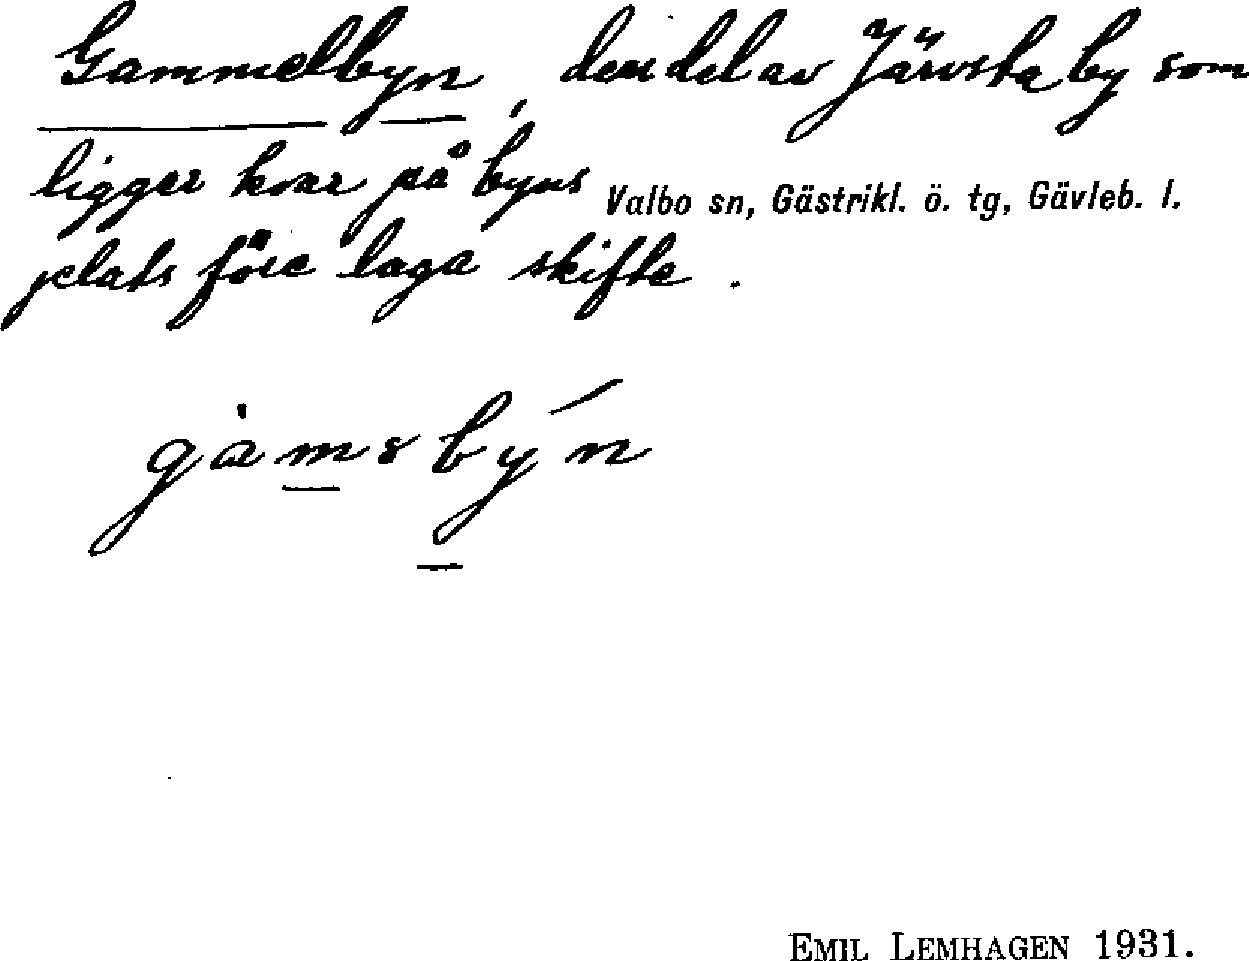 Gammelbyn, den del av Järvsta by som
ligger kvar på byns
Valbo sn, Gästrikl. ö. tg, Gävleb. l.
plats före laga skifte.
gàmsbýn
EMIL LEMHAGEN 1931.